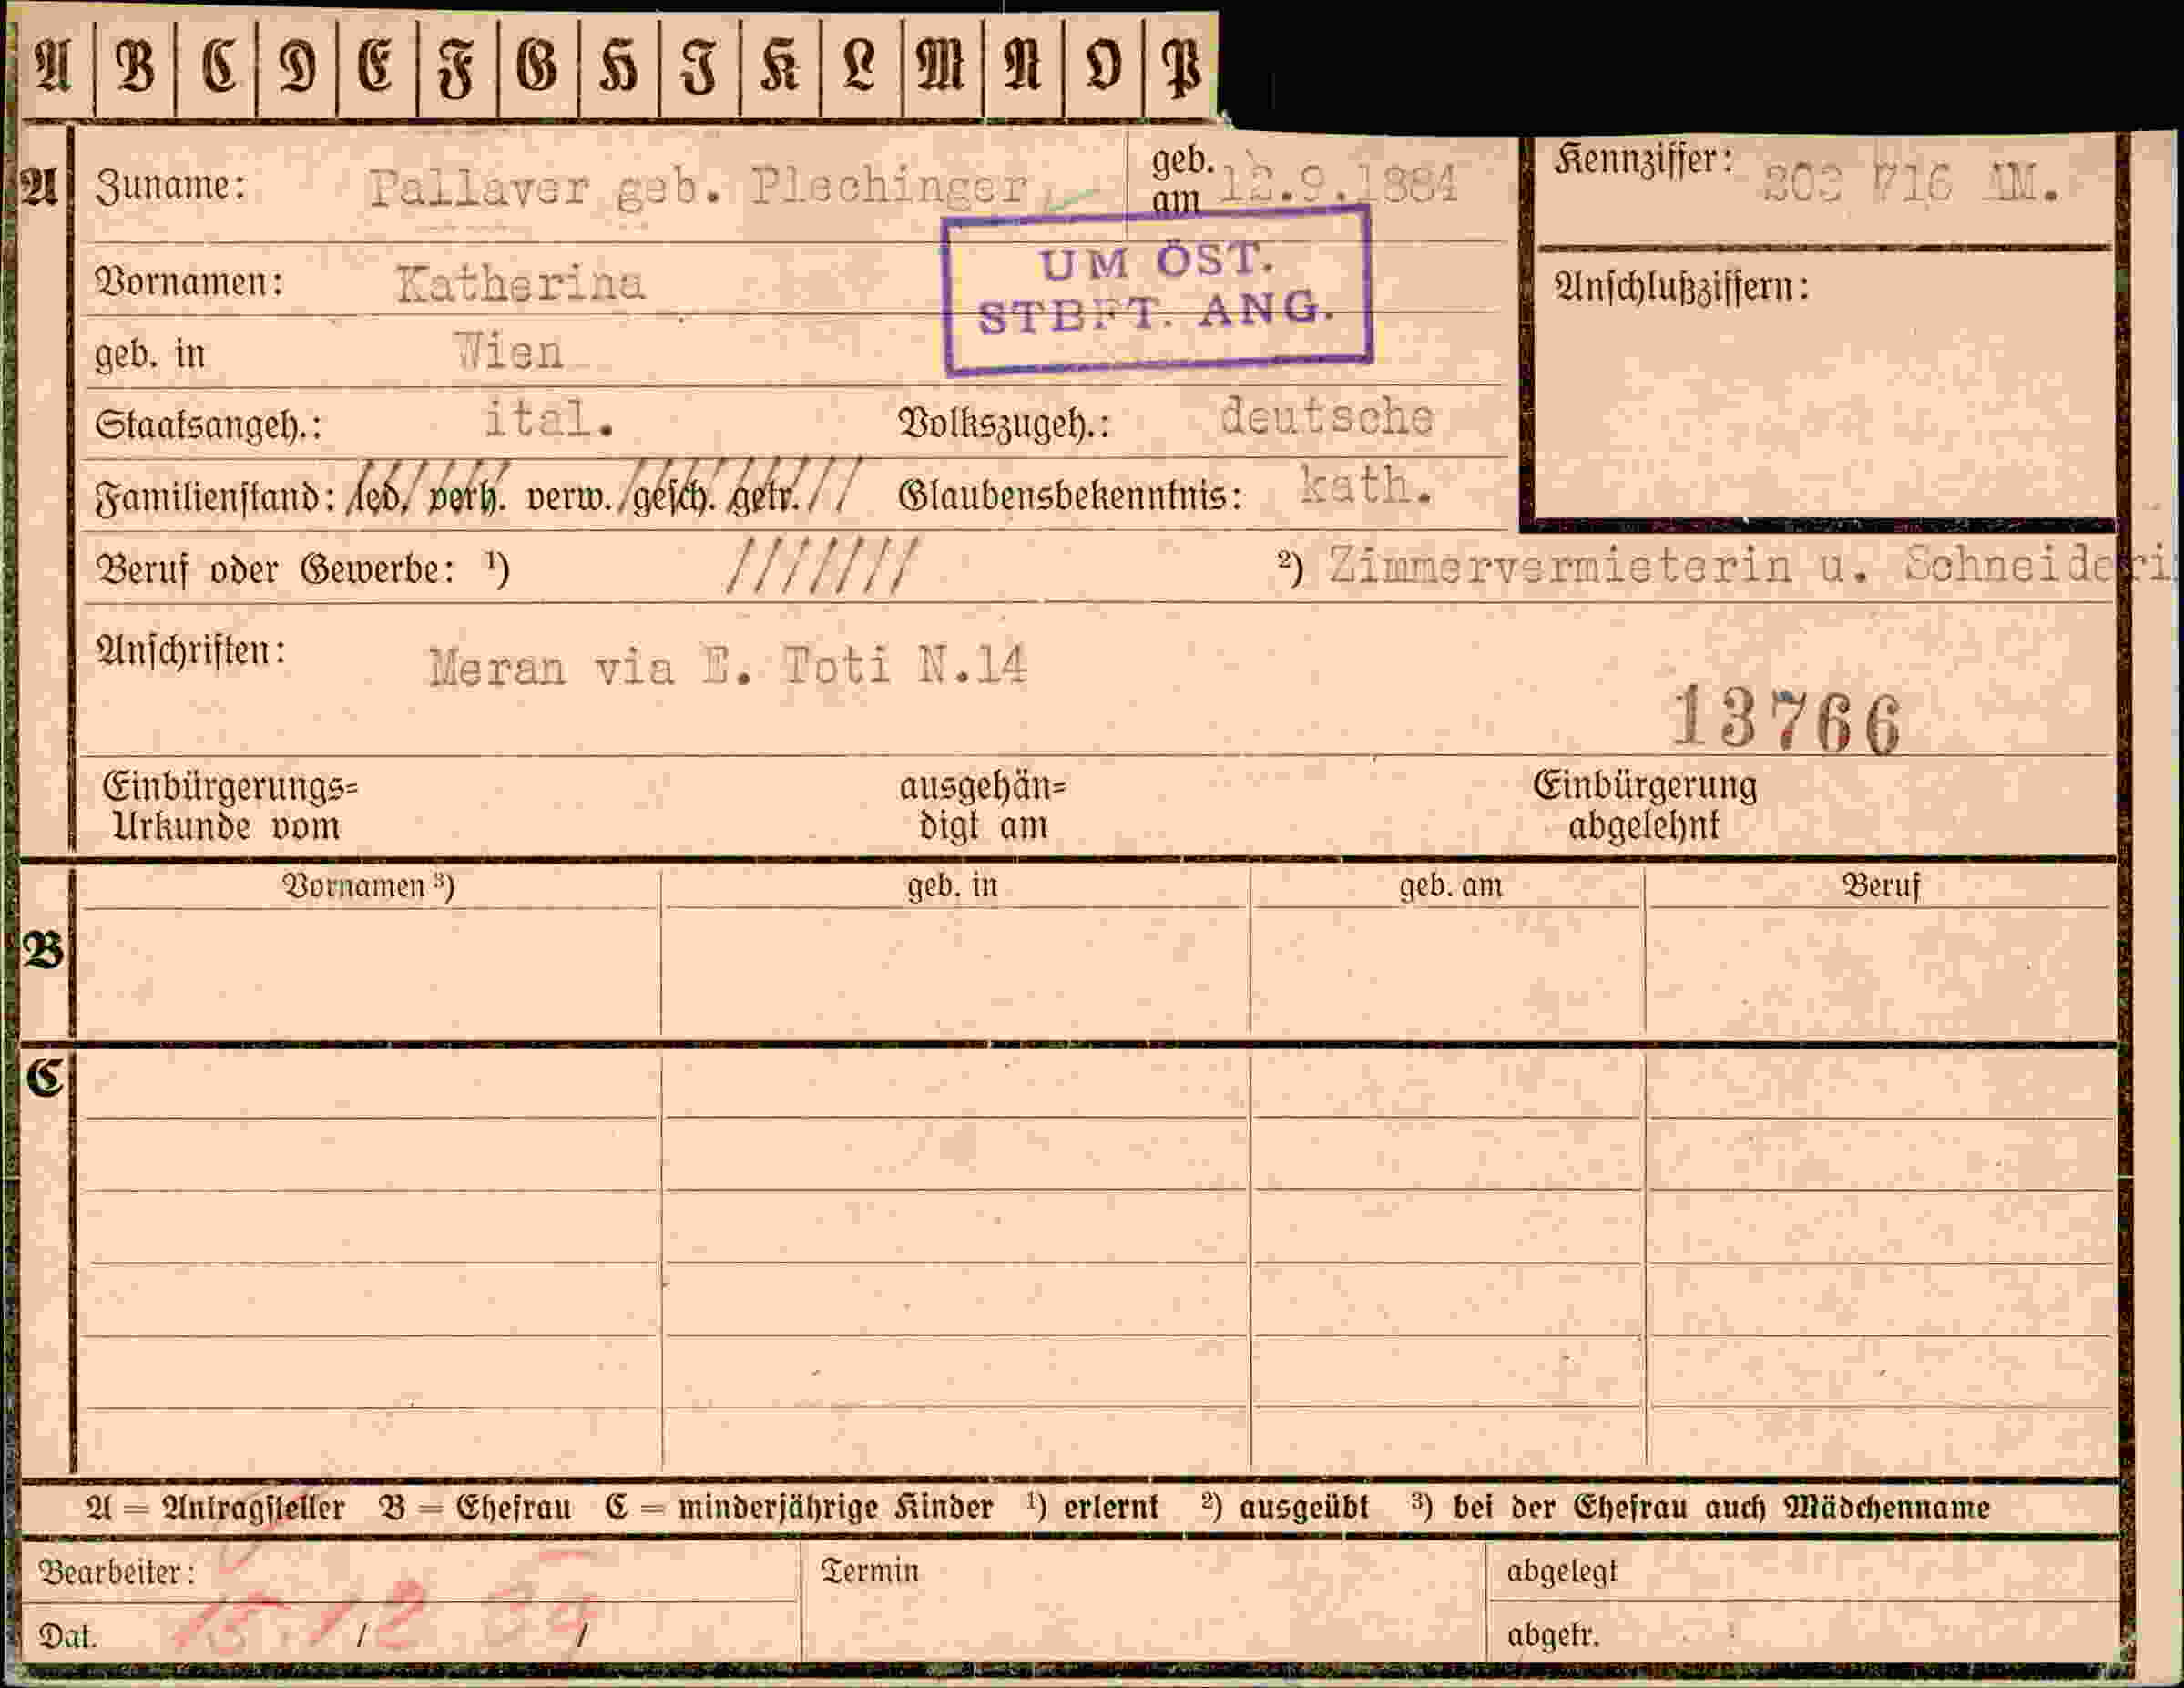 A B C D E F G H I K L M N O P
A Zuname: Pallaver geb. Plechinger geb. am 12.9.1884 Kennziffer: 716 AM.
UM ÖST.
STBFT. ANG.
Vornamen: Katherina Anschlußziffern:
geb. in Wien
Staatsangeh.: ital. Volkszugeh.: deutsche
Familienstand: led. verh. verw. gesch. getr. Glaubensbekenntnis: kath.
Beruf oder Gewerbe: ¹) /////// ²) Zimmervermieterin u. Schneideri
Anschriften: Meran via E. Toti N.14
13766
Einbürgerungs= ausgehän= Einbürgerung
Urkunde vom digt am abgelehnt
Vornamen ³) geb. in geb. am Beruf
B
C
A = Antragsteller B = Ehefrau C = minderjährige Kinder ¹) erlernt ²) ausgeübt ³) bei der Ehefrau auch Mädchenname
Bearbeiter: Termin abgelegt
Dat. 15 / 12 39 / abgetr.